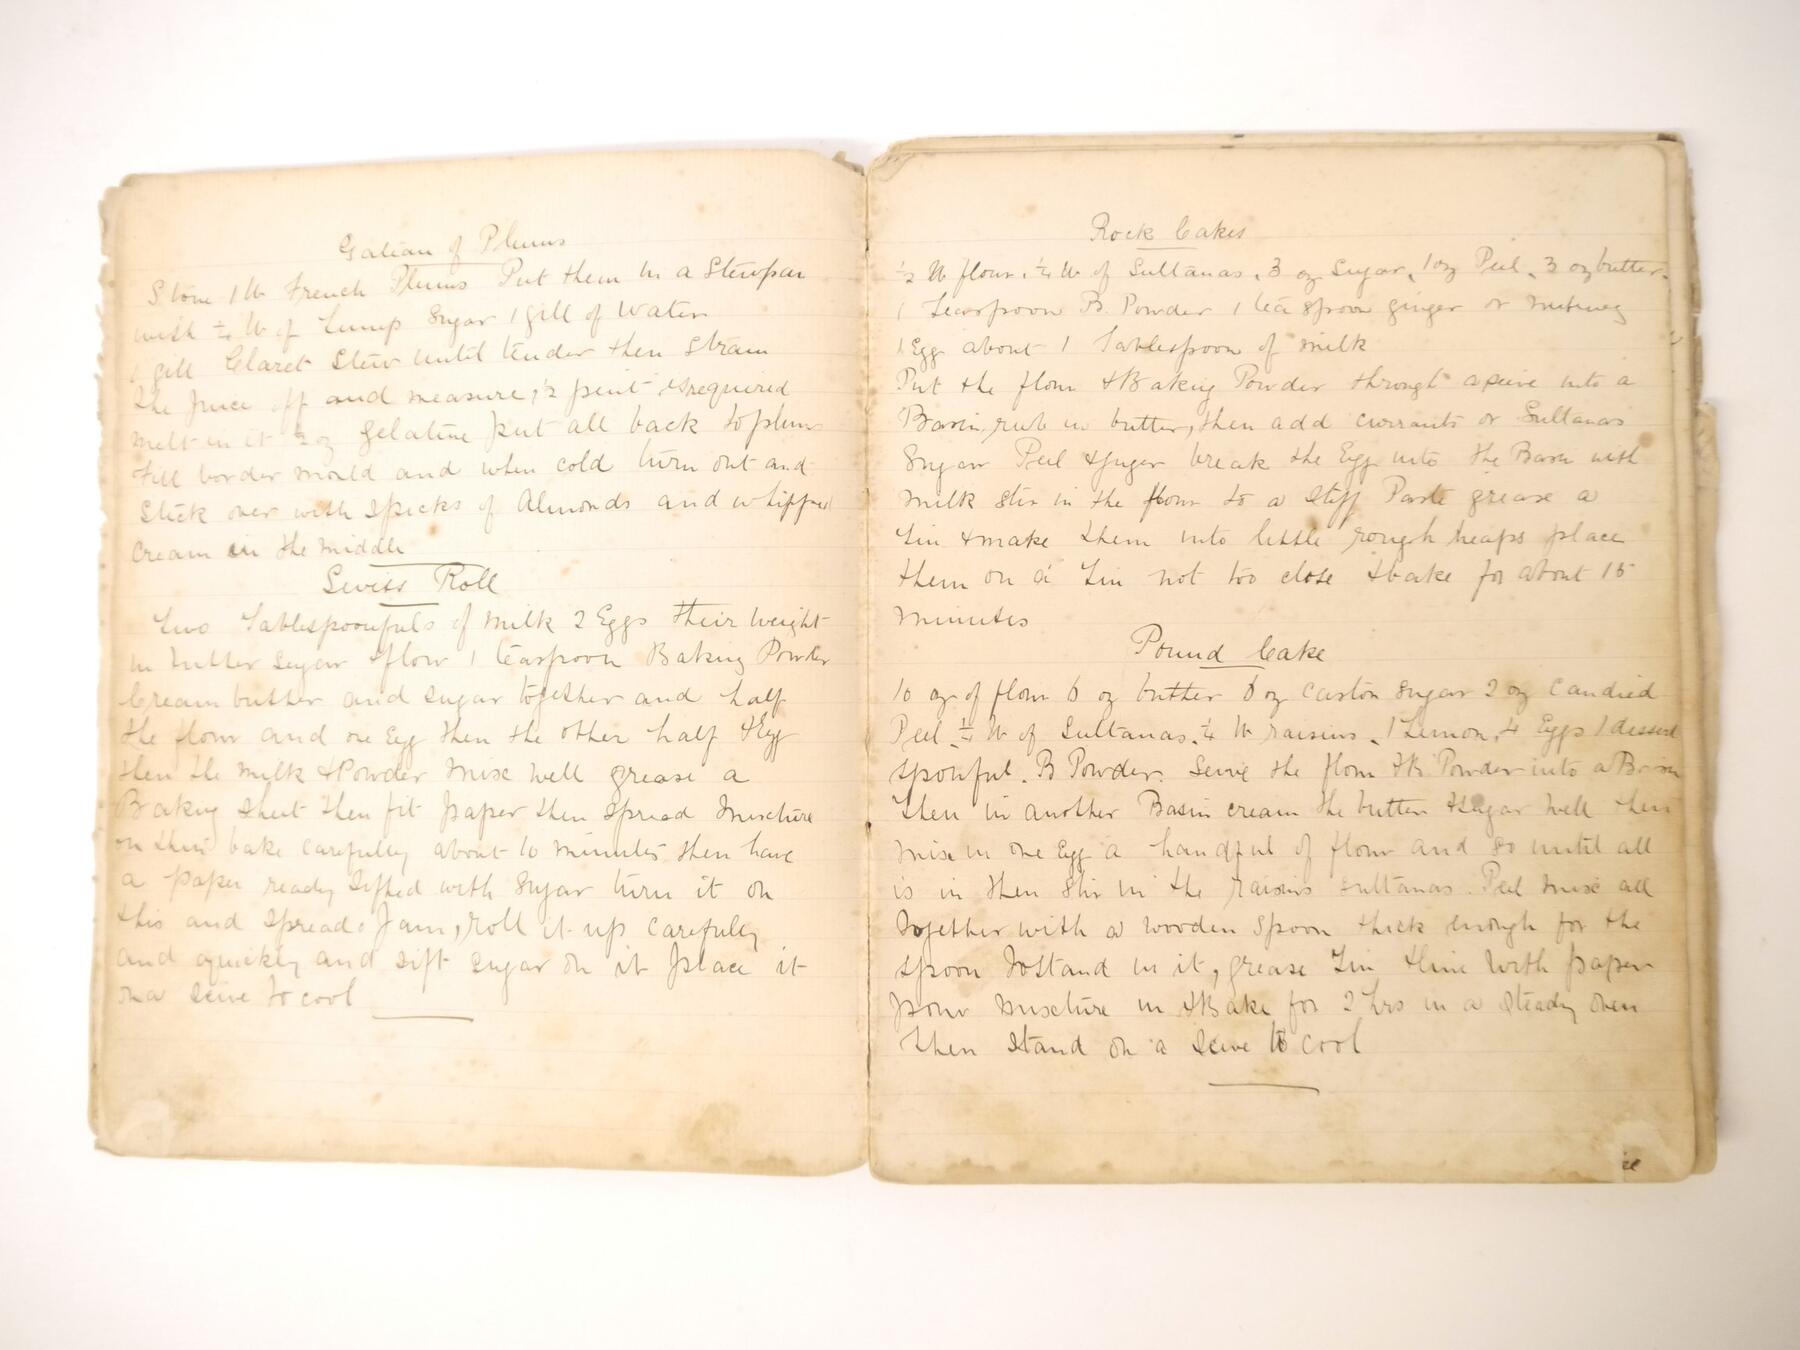 Galian of Plums
Stone 1 lb French Plums Put them in a Stewpan
with ¼ lb of Lump Sugar 1 gill of Water
1 gill Claret Stew until tender then Strain
the juice off and measure, ½ pint is required
melt in it ½ oz gelatine put all back to plums
fill border mould and when cold turn out and
Stick over with spicks of Almonds and whipped
cream in the middle
Swiss Roll
Two Tablespoonfuls of milk 2 Eggs their weight
in butter sugar & flour 1 teaspoon Baking Powder
Cream butter and sugar together and half
the flour and one Egg then the other half & Egg
then the milk & Powder mix well grease a
Baking sheet then fit paper then spread mixture
on then bake carefully about 10 minutes then have
a paper ready sifted with sugar turn it on
this and spread Jam, roll it up carefully
and quickly and sift sugar on it place it
on a seive to cool
Rock Cakes
½ lb flour, ¼ lb of Sultanas, 3 oz Sugar, 1 oz Peel, 3 oz butter.
1 Teaspoon B. Powder 1 tea spoon ginger or nutmeg
1 Egg about 1 Tablespoon of milk
Put the flour & Baking Powder through a seive into a
Basin, rub in butter, then add currants or Sultanas
Sugar Peel & ginger break the Egg into the Basin with
milk stir in the flour to a stiff Paste grease a
Tin & make them into little rough heaps place
them on a Tin not too close & bake for about 15
minutes
Pound Cake
10 oz of flour 6 oz butter 6 oz castor sugar 2 oz candied
Peel, ¼ lb of Sultanas, ¼ lb raisins, 1 Lemon, 4 Eggs 1 dessert
spoonful. B Powder. Seive the flour & B. Powder into a Basin
Then in another Basin cream the butter & sugar well then
mix in one Egg a handful of flour and so until all
is in then stir in the raisins sultanas. Peel mix all
together with a wooden spoon thick enough for the
spoon to stand in it, grease Tin & line with paper
pour mixture in & Bake for 2 hrs in a steady oven
then stand on a seive to cool